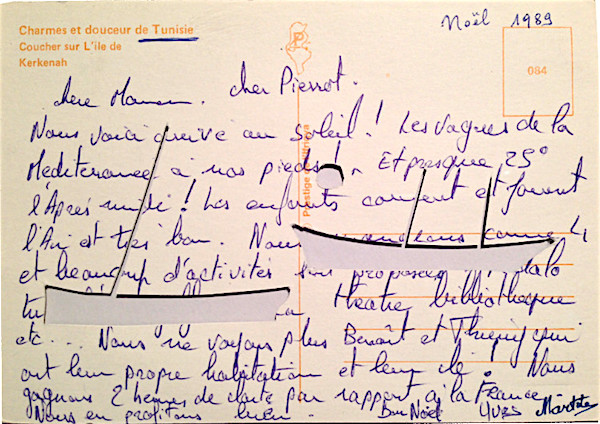 Noël 1989
Charmes et douceur de Tunisie
Coucher sur L'île de
Kerkenah
084
Prestige
chère Maman. cher Pierrot.
Nous voici arrivé au Soleil! Les vagues de la
Méditerannee à nos pieds! Et presque 25°
l'Après midi! Les enfants courent et jouent
l'Air est très bon. Nous
et beaucoup d'activités
théatre, bibliothèque
etc... Nous ne voyons plus Benoît et Thierry qui
ont leur propre habitation et leur clé. Nous
gagnons 2 heures de clarté par rapport à la France
Nous en profitons bien. Bon Noël Yves